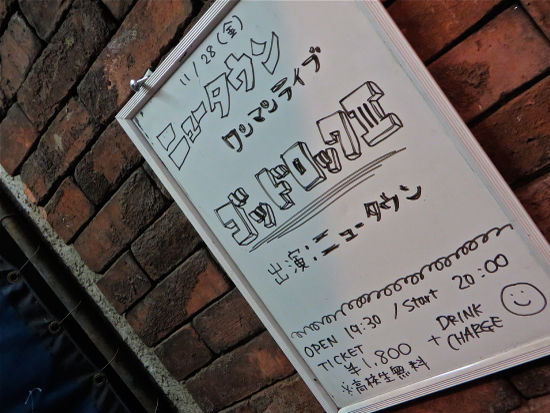 11/28(金)
ニュータウン
ワンマンライブ
ゴッドロックⅢ
出演:ニュータウン
OPEN 19:30 / Start 20:00
TICKET
¥1,800 + DRINK CHARGE
※高校生無料